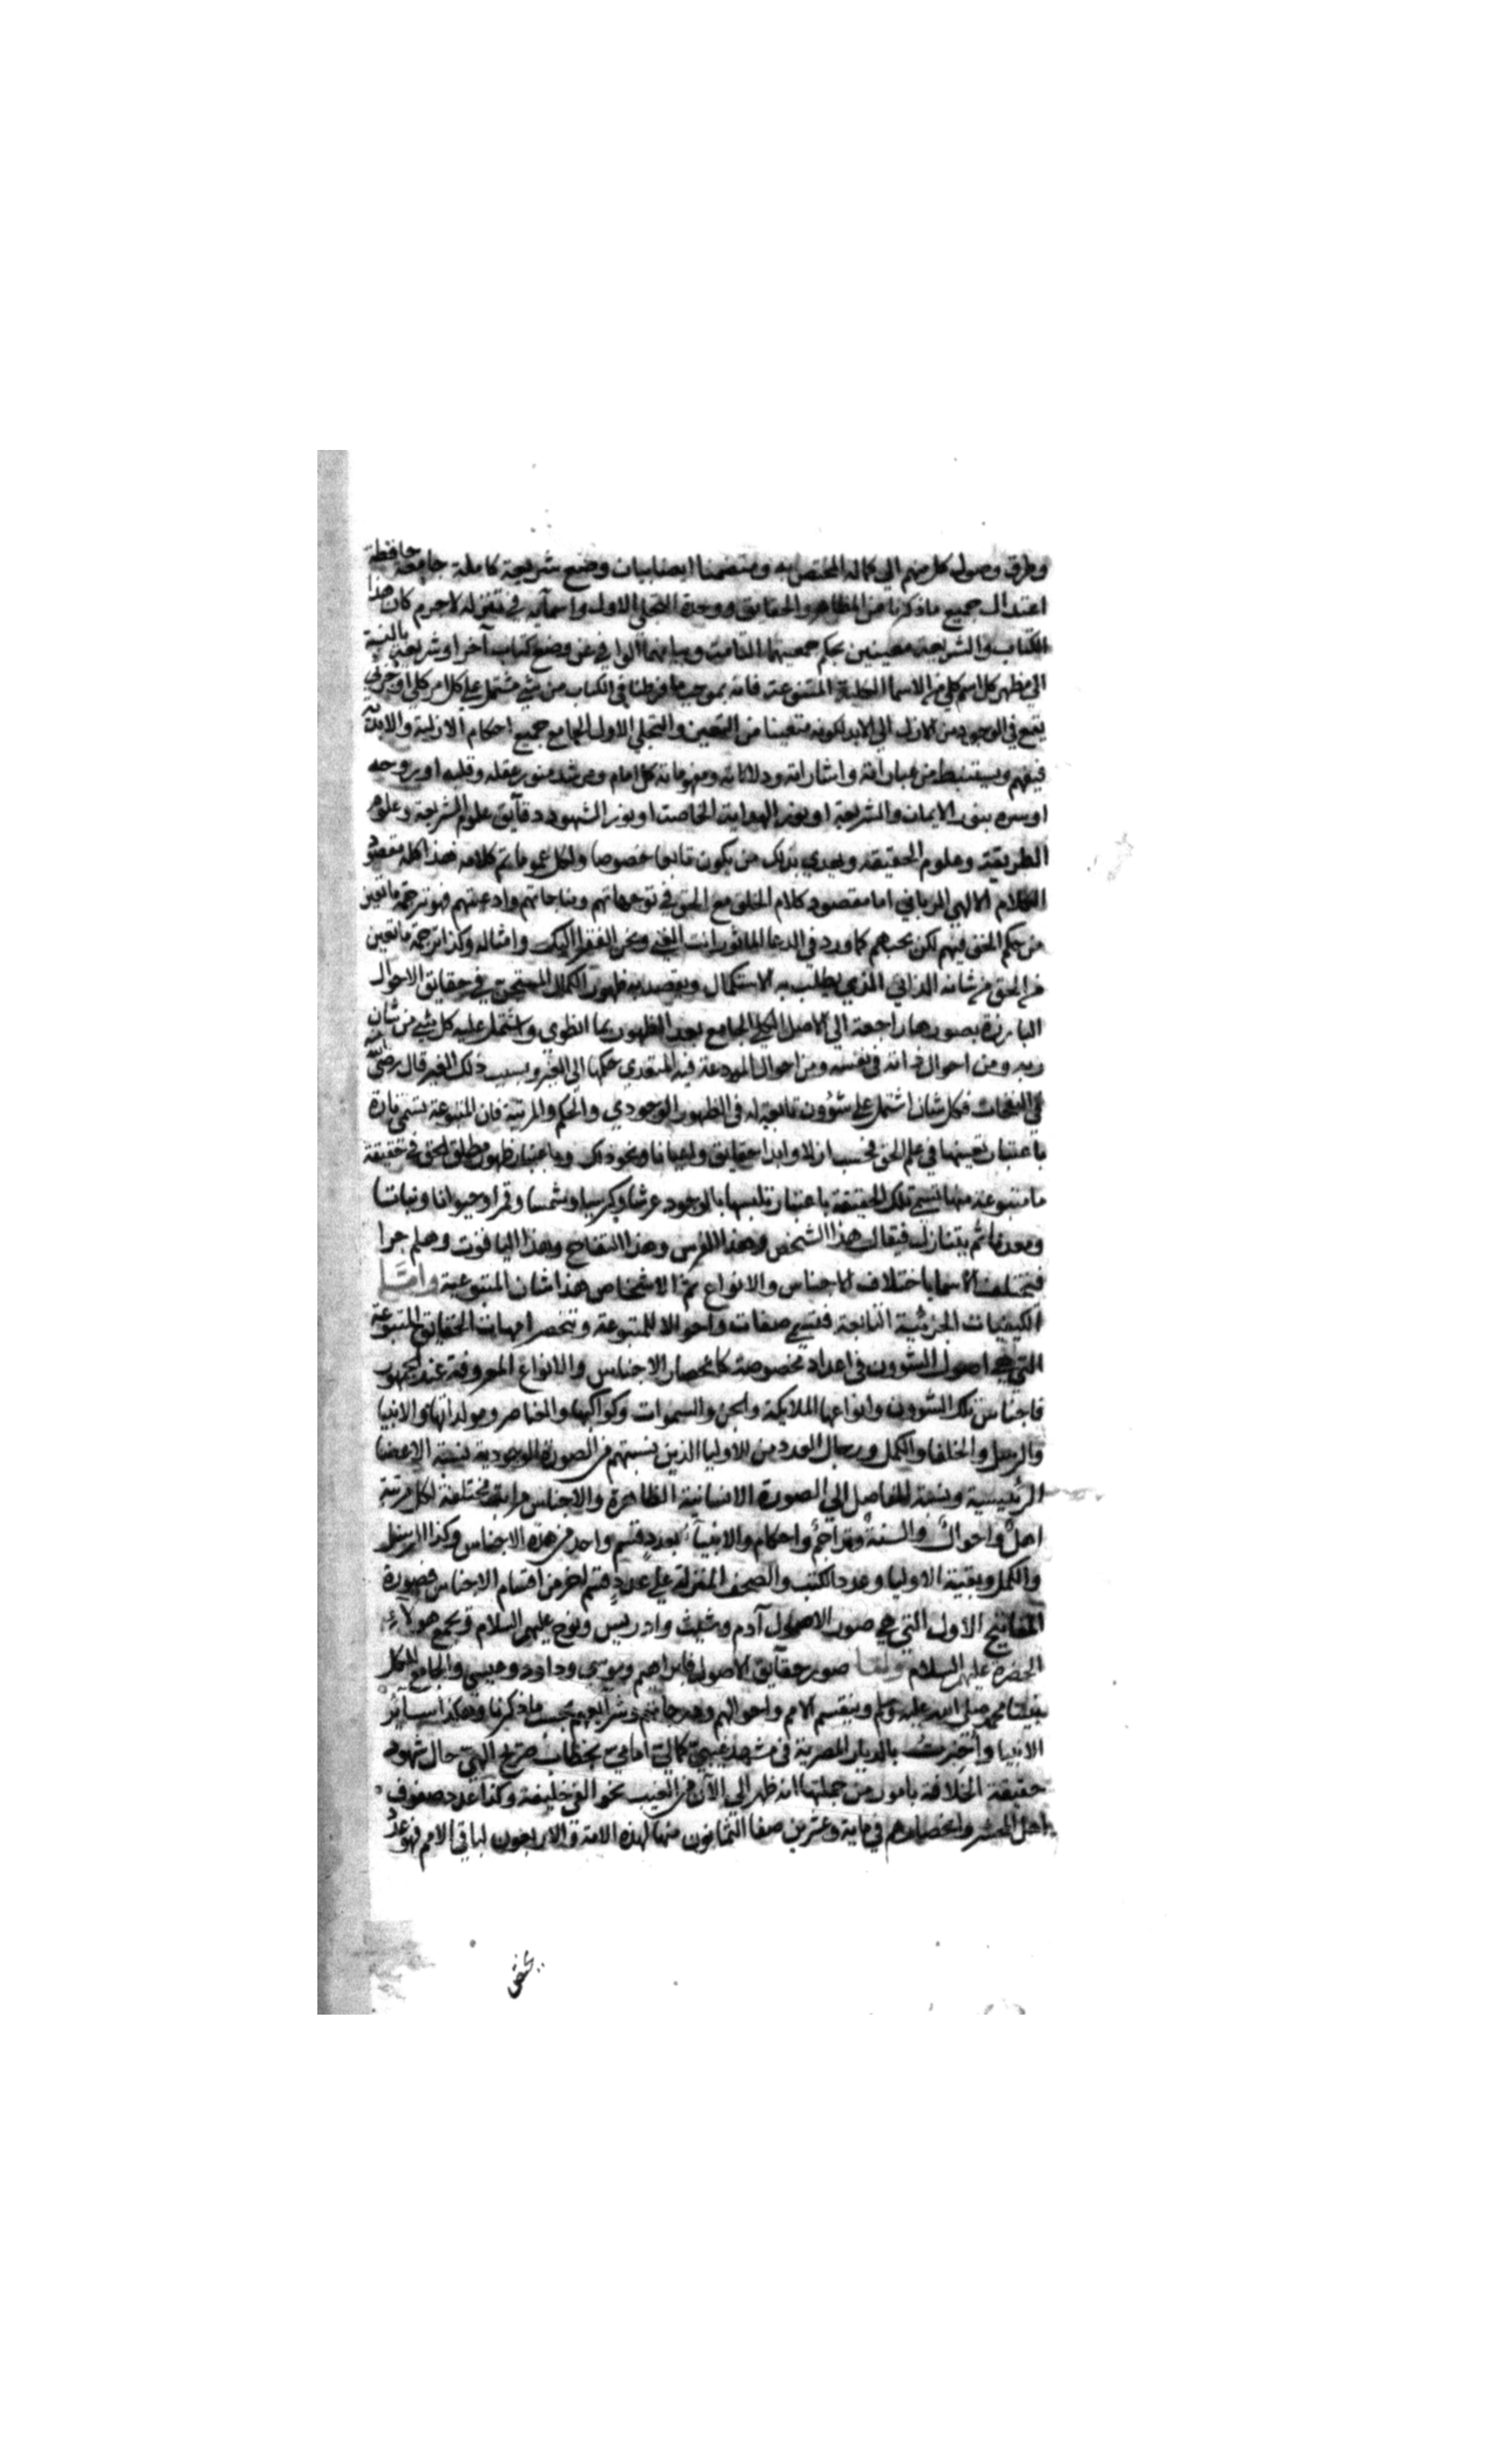 وطرق وصول كل منهم الي كماله المختص به ومتضمنا ايضا بيان وضع شريعة كاملة جامعة حافظة
اعتدال جميع ما ذكرنا من المظاهر والحقايق ووحدة التجلي الاول واسمآيه في تنزله لاجرم كان هذا
الكتاب والشريعة مغنيين بحكم جمعيتهما التامة وبيانهما الوافي عن وضع كتاب آخر او شريعة بالنسبة
الي مظهر كل اسم كلي من الاسما الكلية المتنوعة فانه بموجب ما فرطنا في الكتاب من شي مشتمل علي كل امر كلي او جزئي
يقع في الوجود من الازل الي الابد لكونه متعينا من التعين والتجلي الاول الجامع جميع احكام الازلية والابدية
فيفهم ويستنبط من عباراته واشاراته ودلالاته ومفهوماته كل امام ومرشد منور عقله وقلبه او روحه
او سره بنور الايمان والشريعة او بنور الهداية الخاصة او بنور الشهود دقآيق علوم الشريعة وعلوم
الطريقة وعلوم الحقيقة ويهدي بذلك من يكون تابعا خصوصا ولكل عموما تم كلامه فهذا كله مقصود
الكلام الالهي الرباني اما مقصود كلام الخلق مع الحق في توجهاتهم ومناجاتهم وادعيتهم فهو ترجمة ما تعين
من حكم الحق فيهم لكن بحسبهم كما ورد في الدعا الماثور انت الغني ونحن الفقرا اليك وامثاله وكذا ترجمة ما تعين
من الحق من شانه الذاتي الذي يطلب به الاستكمال ويقصد به ظهور الكمال المستجن في حقايق الاحوال
البارزة بصورها راجعة الي الاصل الكلي الجامع بعد الظهور بما انطوي واشتمل عليه كل شي من شان
ربه ومن احوال ذاته في نفسه ومن احوال المودعة فيه المتعدي حكمها الي الغير وبسبب ذلك الغير قال رضي الله عنه
في النفحات فكل شان اشتمل علي شؤون تابعة له في الظهور الوجودي والحكم والمرتبة فان المتبوعة تسمي تارة
باعتبار تعينها في علم الحق فحسب ازلا وابدا حقايق واعيانا ونحو ذلك وباعتبار ظهور مطلق الحق في حقيقة
ما متبوعة منها تسمي تلك الحقيقة باعتبار تلبسها بالوجود عرشا وكرسيا وشمسا وقمرا وحيوانا ونباتا
ومعدنا ثم يتنازل فيقال هذا الشخص وهذا الفرس وهذا التفاح وهذا الياقوت وهلم جرا
فتختلف الاسما باختلاف الاجناس والانواع ثم الاشخاص هذا شان المتبوعية وامـــا
الكيفيات الجزئية التابعة فتسمي صفات واحوالا للمتبوعة وتنحصر امهات الحقايق المتبوعة
التي هي اصول الشؤون في اعداد مخصوصة كانحصار الاجناس والانواع المعروفة عند الجمهور
فاجناس تلك الشؤون وانواعها الملايكة والجن والسموات وكواكبها والعناصر ومولداتها والانبيا
والرسل والخلفا والكمل ورجال العدد من الاوليا الذين نسبتهم من الصورة الوجودية نسبة الاعضا
الرئيسية ونسبة المفاصل الي الصورة الانسانية الظاهرة والاجناس مراتبها مختلفة لكل مرتبة
اهل واحوال والسنة وتراجم واحكام والانبيآء بعدد قسم واحد من هذه الاجناس وكذا الرسل
والكمل وبقية الاوليا وعدد الكتب والصحف المنزلة علي عدد قسم اخر من اقسام الاجناس فصورة
المفاتيح الاول التي هي صور الاصول آدم وشيث وادريس ونوح عليهم السلام ويجمع هولاء
الخضر عليهم السلام وامـا صور حقآيق الاصول فابراهيم وموسي وداود وعيسي والجامع للكل
نبينا محمد صلي الله عليه وسلم وينقسم الامم واحوالهم ودرجاتهم وشرآيعهم بحسب ما ذكرنا وهكذا سـائر
الانبيا واُخبرتُ بالديار المصرية في مشهد غيبي كمالي امامي بخطاب صريح الهي حال شهود
حقيقة الخلافة بامور من جملتها انه ظهر الي الآن من الغيب نحو الفي خليفة وكذا عدد صفوف
اهل المحشر وانحصارهم في ماية وعشرين صفا الثمانون منها لهذه الامة والاربعون لباقي الامم فهو عدد